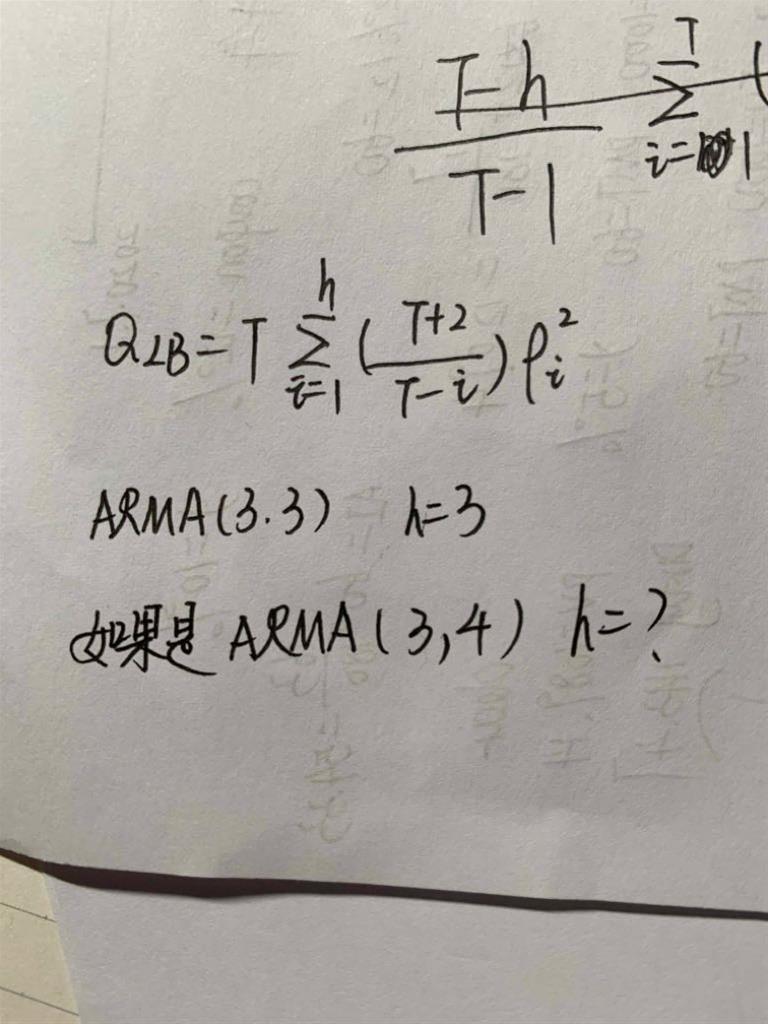 T-h / T-1 Σ T i=1 (
Q_LB = T Σ_{i=1}^{h} (T+2 / T-i) ρ_i^2
ARMA(3.3) h=3
如果是 ARMA(3,4) h=?